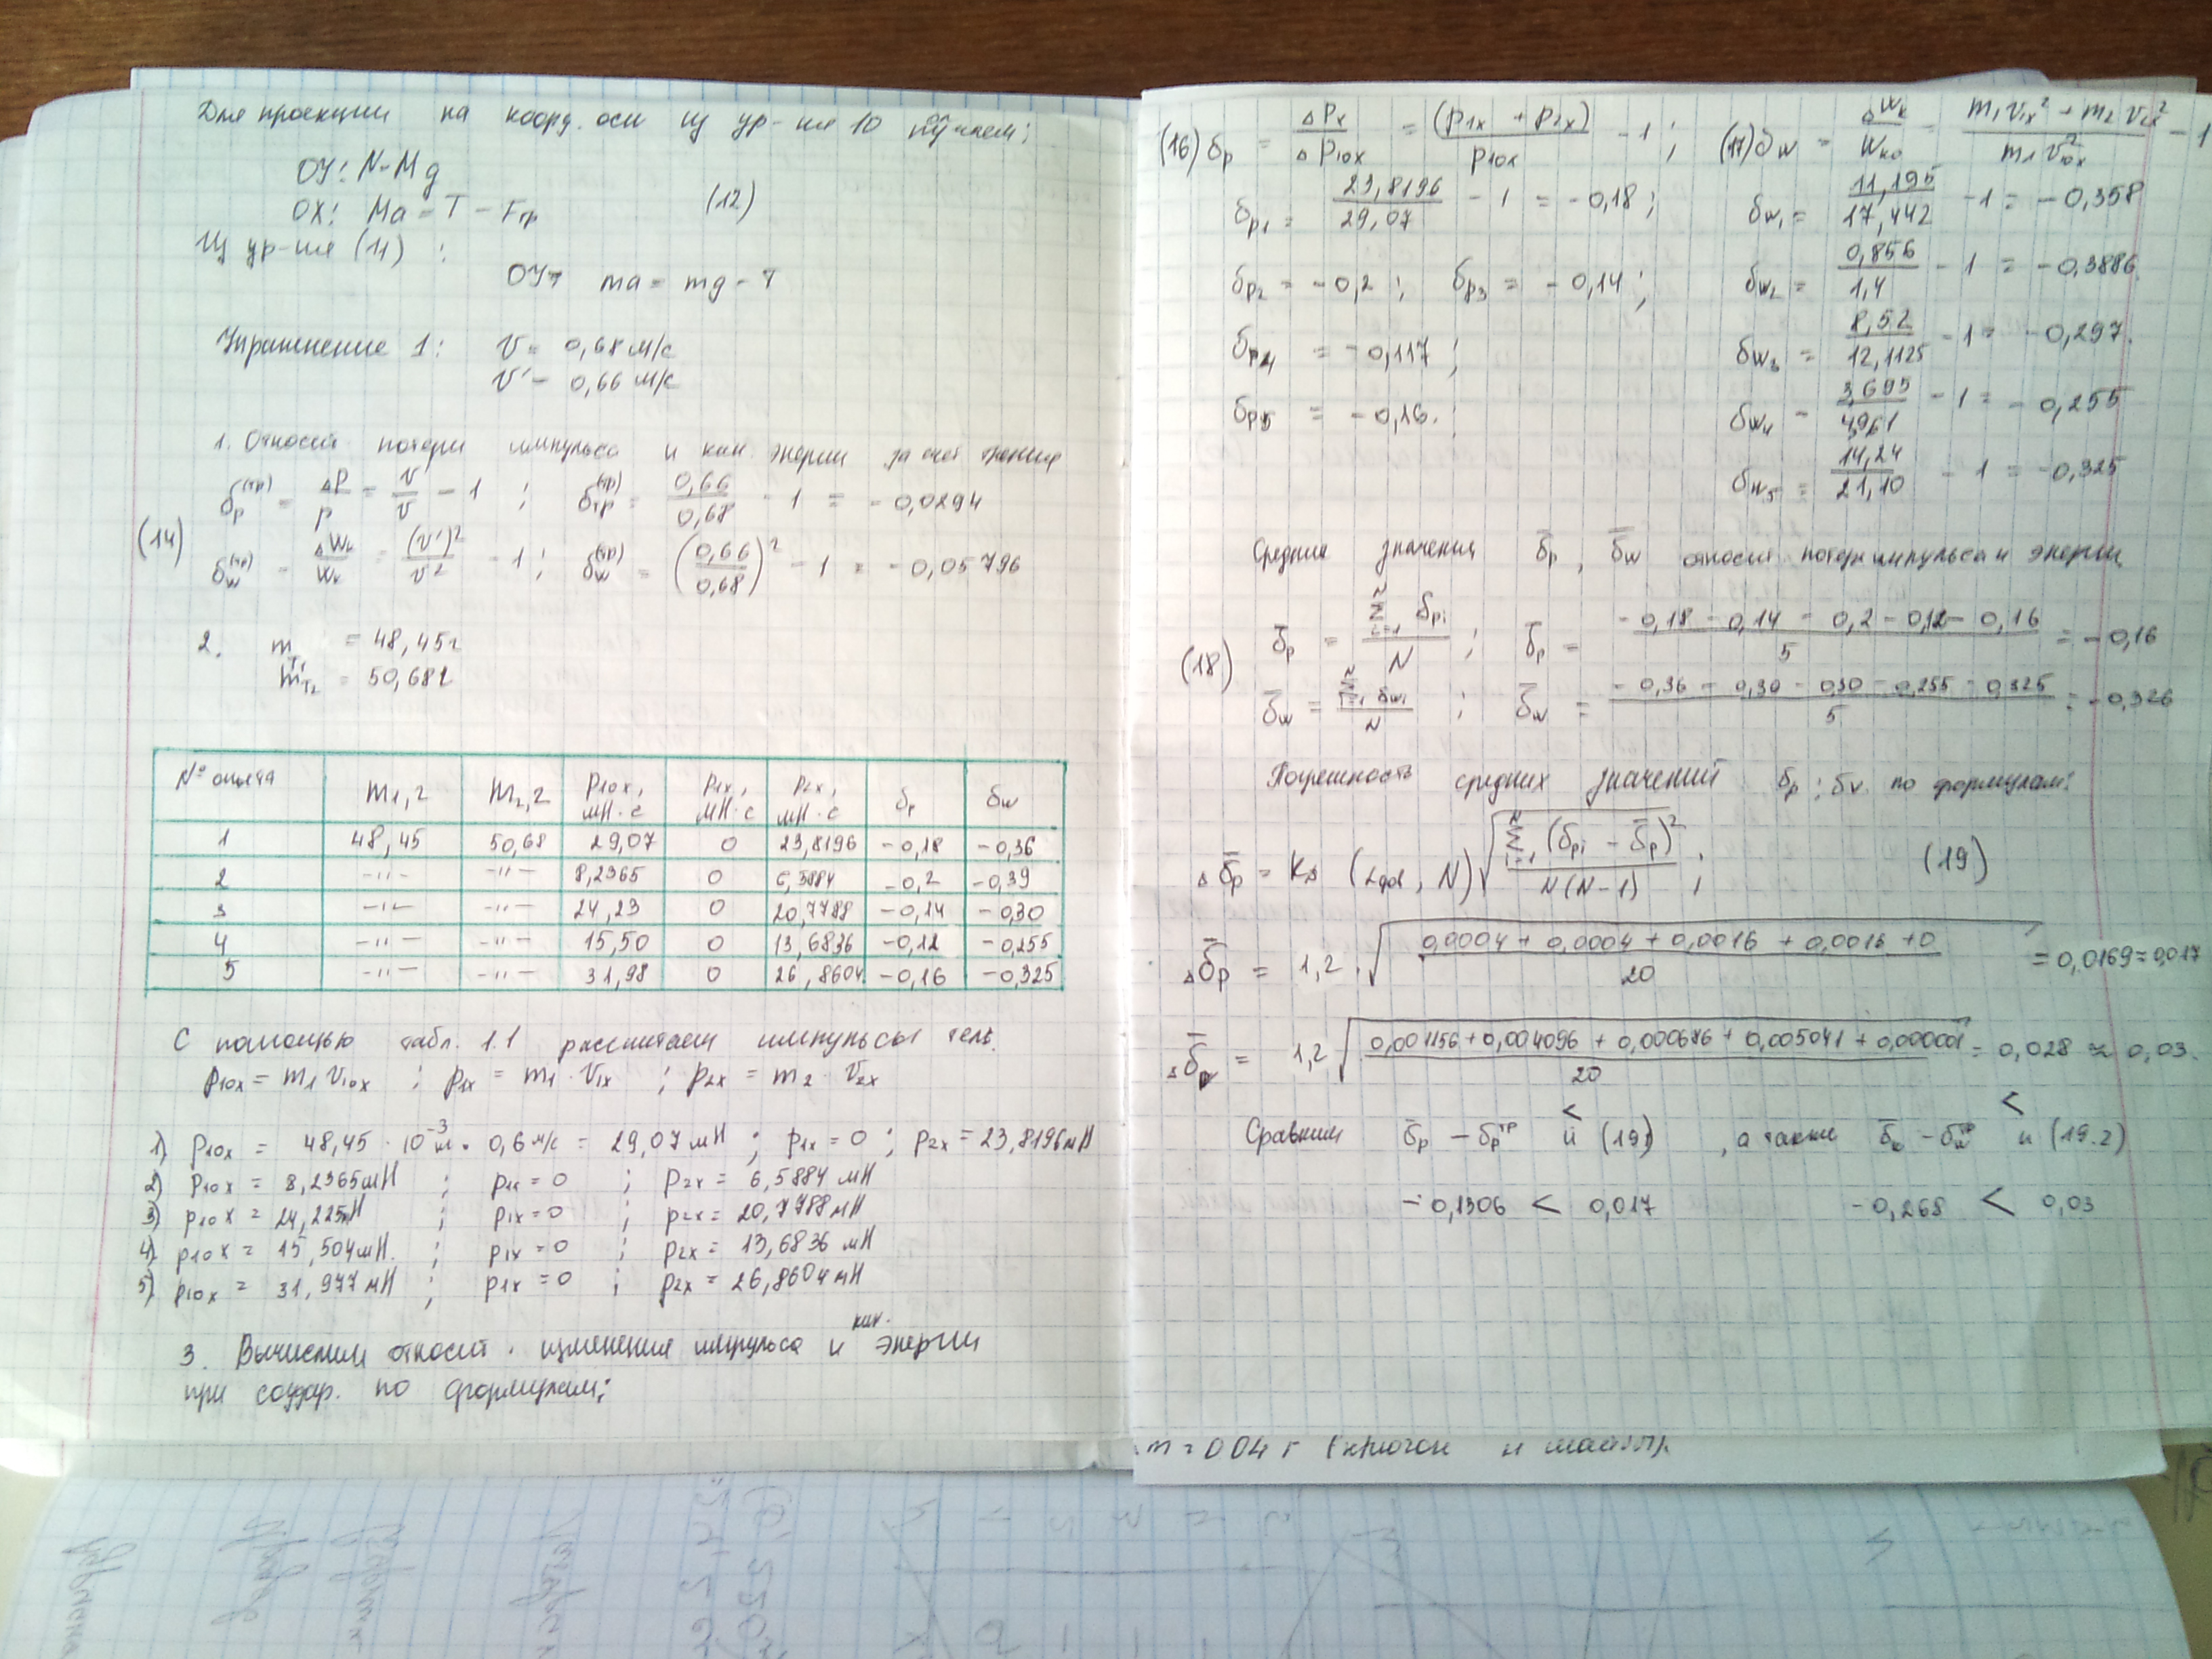 Для проекции на коорд. оси из ур-ия 10 получаем:
OY: N-Mg
OX: Ma = T - Fтр (12)
Из ур-ия (11) :
OY: ma = mg - T
Упражнение 1: V = 0,68 м/с
V' = 0,66 м/с
1. Относит потери импульса и кин. энергии за счет трения
(14) δp^(тр) = Δp/p = v'/v - 1 ; δтр^(тр) = 0,66/0,68 - 1 = -0,0294
δw^(тр) = ΔWk/Wk = (v')²/v² - 1 ; δw^(тр) = (0,66/0,68)² - 1 = -0,05796
2. mт1 = 48,45г
mт2 = 50,68г
№ опыта | m1, г | m2, г | p10x, мН·с | p1x, мН·с | p2x, мН·с | δp | δw
1 | 48,45 | 50,68 | 29,07 | 0 | 23,8196 | -0,18 | -0,36
2 | -"- | -"- | 8,2365 | 0 | 6,5884 | -0,2 | -0,39
3 | -"- | -"- | 24,23 | 0 | 20,7788 | -0,14 | -0,30
4 | -"- | -"- | 15,50 | 0 | 13,6836 | -0,12 | -0,255
5 | -"- | -"- | 31,98 | 0 | 26,8604 | -0,16 | -0,325
С помощью табл. 1.1 рассчитаем импульсы тел.
p10x = m1 v10x ; p1x = m1 · v1x ; p2x = m2 · v2x
1) p10x = 48,45 · 10⁻³ · 0,6 м/с = 29,07 мН ; p1x = 0 ; p2x = 23,8196мН
2) p10x = 8,2365мН ; p1x = 0 ; p2x = 6,5884 мН
3) p10x = 24,225мН ; p1x = 0 ; p2x = 20,7788мН
4) p10x = 15,504мН. ; p1x = 0 ; p2x = 13,6836 мН
5) p10x = 31,977 мН ; p1x = 0 ; p2x = 26,8604 мН
3. Вычислим относит. изменения импульса и кин. энергии
при соудар. по формулам:
(16) δp = Δpx/Δp10x = (p1x + p2x)/p10x - 1 ; (17) δw = ΔWk/Wk0 = (m1v1x² + m2v2x²)/(m1v10x²) - 1
δp1 = 23,8196/29,07 - 1 = -0,18 ; δw1 = 11,195/17,442 - 1 = -0,358
δp2 = -0,2 ; δp3 = -0,14 ; δw2 = 0,856/1,4 - 1 = -0,3886
δp4 = -0,117 ; δw3 = 8,52/12,1125 - 1 = -0,297.
δp5 = -0,16. ; δw4 = 3,695/4,961 - 1 = -0,255
δw5 = 14,24/21,10 - 1 = -0,325
Средние значения δ̄p, δ̄w относит потери импульса и энергии
(18) δ̄p = Σ(i=1, N) δpi/N ; δ̄p = (-0,18 - 0,14 - 0,2 - 0,12 - 0,16)/5 = -0,16
δ̄w = Σ(i=1, N) δwi/N ; δ̄w = (-0,36 - 0,39 - 0,30 - 0,255 - 0,325)/5 = -0,326
Погрешность средних значений δp ; δw по формулам:
Δδ̄p = Ks (, N) √(Σ(i=1, N) (δpi - δ̄p)²/N(N-1)) ; (19)
Δδ̄p = 1,2 · √((0,0004 + 0,0004 + 0,0016 + 0,0016 + 0)/20) = 0,0169≈0,017
Δδ̄ = 1,2 √((0,001156 + 0,004096 + 0,000676 + 0,005041 + 0,000001)/20) = 0,028 ≈ 0,03.
Сравним δ̄p - δp^тр < и (19) , а также δ̄w - δw^тр < и (19.2)
-0,1306 < 0,017 -0,268 < 0,03
m = 004 г (крючок и шайбы).